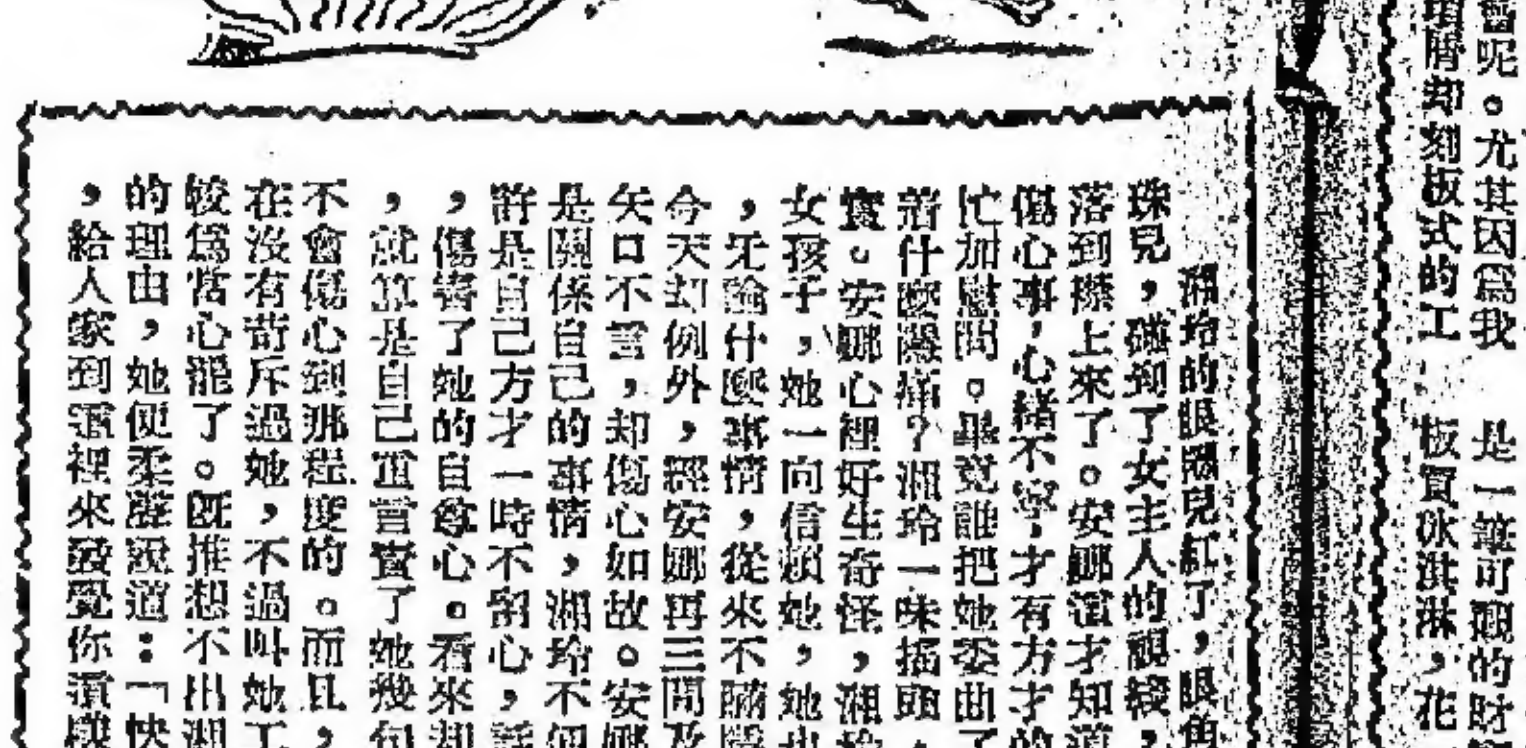 會呢。尤其因爲我
瑣屑却刻板式的工
是一筆可觀的財
板買冰淇淋,花
湘玲的眼圈兒紅了,眼角
珠兒,碰到了女主人的視綫,
落到襟上來了。安娜這才知道
傷心事,心緒不寧,才有方才的
忙加慰問。畢竟誰把她委曲了
着什麽隱痛?湘玲一味搖頭,
實。安娜心裡好生奇怪,湘玲
女孩子,她一向信賴她,她也
,无論什麽事情,從來不瞞
今天却例外,經安娜再三問及
矢口不言,却傷心如故。安娜
是關係自己的事情,湘玲不
許是自己方才一時不留心,話
,傷害了她的自尊心。看來却
,就算是自己重言責了她幾句
不會傷心到那程度的。而且,
在沒有苛斥過她,不過叫她工
較爲當心罷了。既推想不出湘
的理由,她便柔聲說道:「快
,給人家到這裡來發覺你這樣